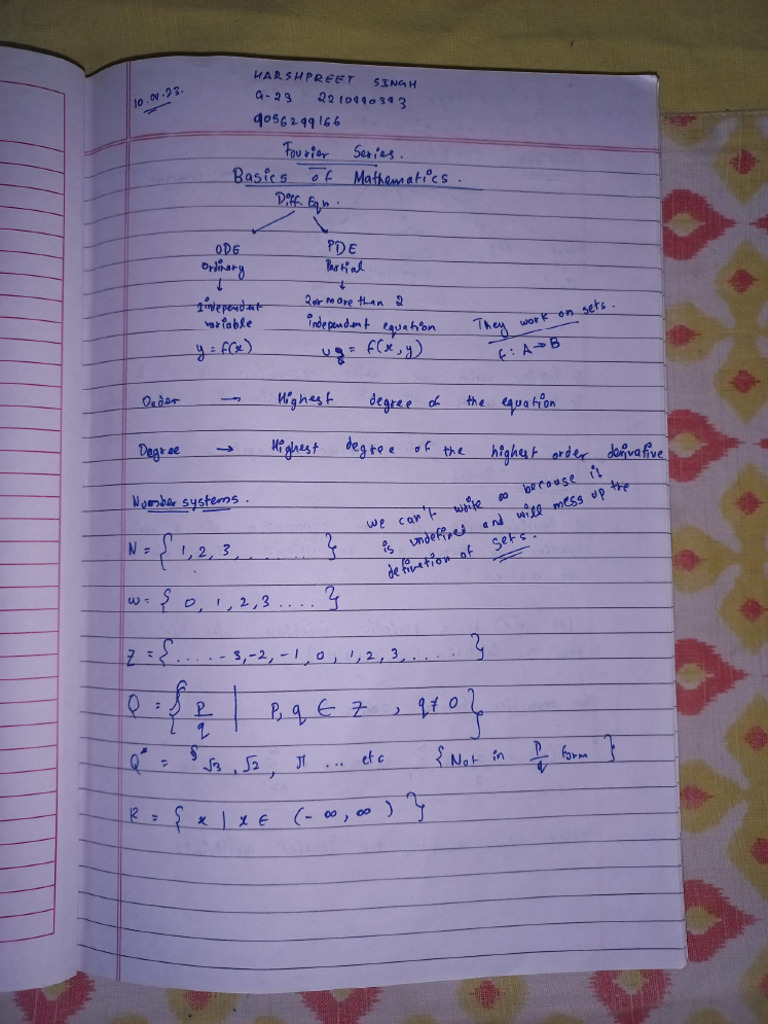 HARSHPREET SINGH
10.01.23.
G-23 2210990393
9056299166
Fourier Series.
Basics of Mathematics.
Diff. Eqn.
ODE PDE
Ordinary Partial
independent 2 or more than 2
variable independent equation
They work on sets.
y = f(x) = f(x, y)
f: A→B
Order → Highest degree of the equation
Degree → Highest degree of the highest order derivative
Number systems.
we can't write ∞ because it
is undefined and will mess up the
defination of sets.
N = { 1, 2, 3, ........ }
W = { 0, 1, 2, 3 .... }
Z = { ..... -3, -2, -1, 0, 1, 2, 3, ..... }
Q = { P/q | P, q ∈ Z, q ≠ 0 }
Q* = { √3, √2, π ... etc { Not in P/q form }
R = { x | x ∈ (-∞, ∞) }